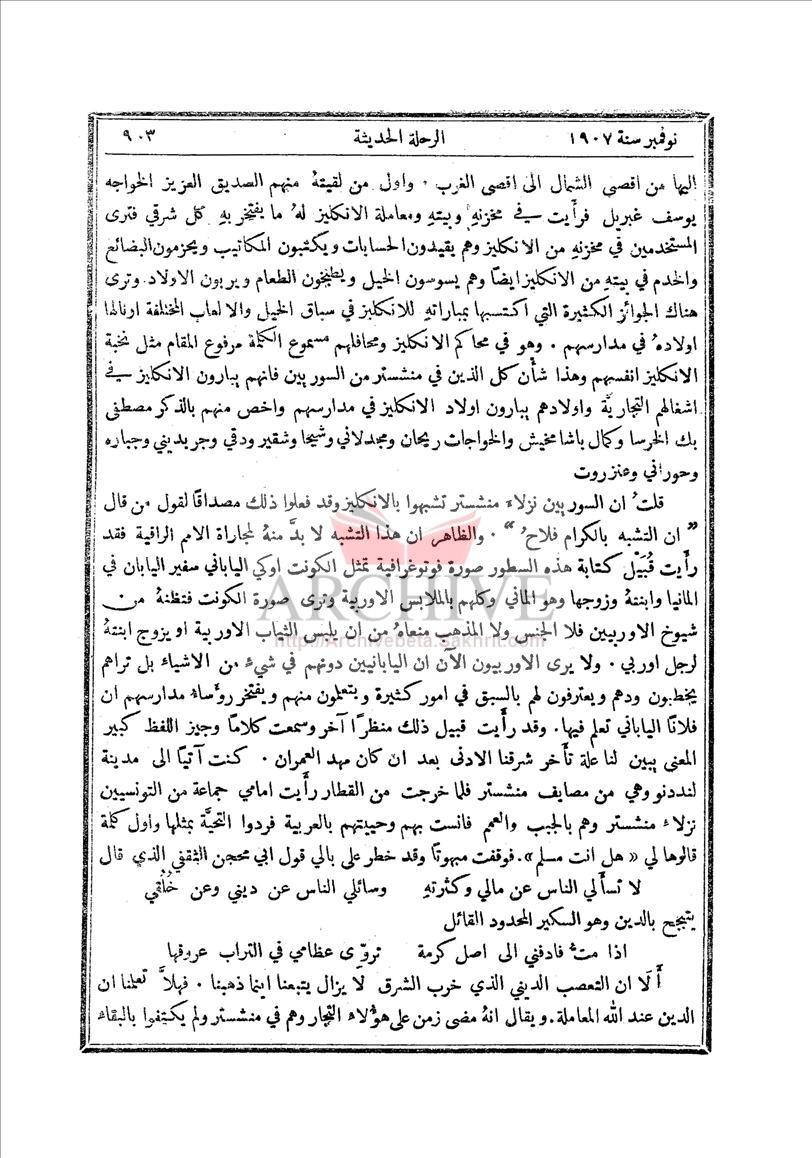 نوفمبر سنة ١٩٠٧ الرحلة الحديثة ٩٠٣
اليها من اقصى الشمال الى اقصى الغرب . واول من لقيتهُ منهم الصديق العزيز الخواجه
يوسف غبريل فرأيت في مخزنهِ وبيتهِ ومعاملة الانكليز لهُ ما يفتخر بهِ كل شرقي فترى
المستخدمين في مخزنهِ من الانكليز وهم يقيدون الحسابات ويكتبون المكاتيب ويحزمون البضائع
والخدم في بيتهِ من الانكليز ايضًا وهم يسوسون الخيل ويطبخون الطعام ويربون الاولاد وترى
هناك الجوائز الكثيرة التي اكتسبها بمباراتهِ للانكليز في سباق الخيل والالعاب المختلفة اونالها
اولادهُ في مدارسهم . وهو في محاكم الانكليز ومحافلهم مسموع الكلمة مرفوع المقام مثل نخبة
الانكليز انفسهم وهذا شأن كل الذين في منشستر من السوريين فانهم يبارون الانكليز في
اشغالهم التجاريَّة واولادهم يبارون اولاد الانكليز في مدارسهم واخص منهم بالذكر مصطفى
بك الخرسا وكمال باشا مخيش والخواجات ريحان ومجدلاني وشيحا وشقير ودقي وجريديني وجباره
وحوراني وعنزروت
قلتُ ان السوريين نزلاء منشستر تشبهوا بالانكليز وقد فعلوا ذلك مصداقًا لقول من قال
” ان التشبه بالكرام فلاحُ “ . والظاهر ان هذا التشبه لا بدَّ منهُ لمجاراة الامم الراقية فقد
رأيت قُبَيْل كتابة هذه السطور صورة فوتوغرافية تمثل الكونت اوكي الياباني سفير اليابان في
المانيا وابنتهُ وزوجها وهو الماني وكلهم بالملابس الاوربية وترى صورة الكونت فتظنهُ من
شيوخ الاوربيين فلا الجنس ولا المذهب منعاهُ من ان يلبس الثياب الاوربية او يزوج ابنتهُ
لرجل اوربي . ولا يرى الاوربيون الآن ان اليابانيين دونهم في شيء من الاشياء بل تراهم
يخطبون ودهم ويعترفون لهم بالسبق في امور كثيرة ويتعلمون منهم ويفتخر رؤساء مدارسهم ان
فلانًا الياباني تعلم فيها . وقد رأيت قبيل ذلك منظرًا آخر وسمعت كلامًا وجيز اللفظ كبير
المعنى يبين لنا علة تأخر شرقنا الادنى بعد ان كان مهد العمران . كنت آتيًا الى مدينة
لنددنو وهي من مصايف منشستر فلما خرجت من القطار رأيت امامي جماعة من التونسيين
نزلاء منشستر وهم بالجبب والعمم فانست بهم وحييتهم بالعربية فردوا التحيَّة بمثلها واول كلمة
قالوها لي « هل انت مسلم ». فوقفت مبهوتًا وقد خطر على بالي قول ابي محجن الثقفي الذي قال
لا تسألي الناس عن مالي وكثرتهِ وسائلي الناس عن ديني وعن خُلُقي
يتبجح بالدين وهو السكير المحدود القائل
اذا متُّ فادفني الى اصل كرمة تروّي عظامي في التراب عروقها
أَلَا ان التعصب الديني الذي خرب الشرق لا يزال يتبعنا اينما ذهبنا . فهلاَّ تعلمنا ان
الدين عند الله المعاملة . ويقال انهُ مضى زمن على هؤلاء التجار وهم في منشستر ولم يكتفوا بالبقاء
ARCHIVE
http://Archivebeta.Sakhrit.com